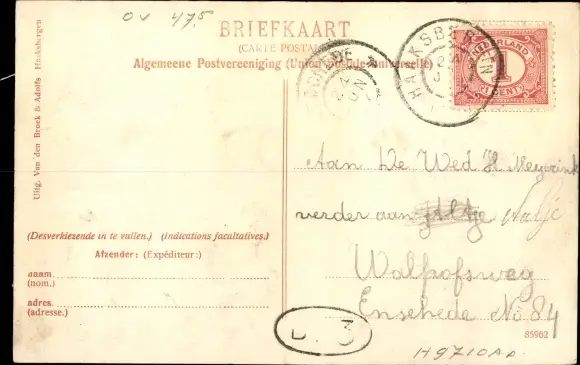 OV 475
BRIEFKAART
(CARTE POSTALE)
Algemeene Postvereeniging (Union postale universelle)
Uitg. Van den Broek & Adolfs Haaksbergen
HAAKSBERGEN
NEDERLAND
1
CENT
Aan De Wed H Meyerink
verder aan Aaltje
Walhofsweg
Enschede No 84
(Desverkiezende in te vullen.) (Indications facultatives.)
Afzender: (Expéditeur:)
naam
(nom.)
adres
(adresse.)
3
85962
H9710AD